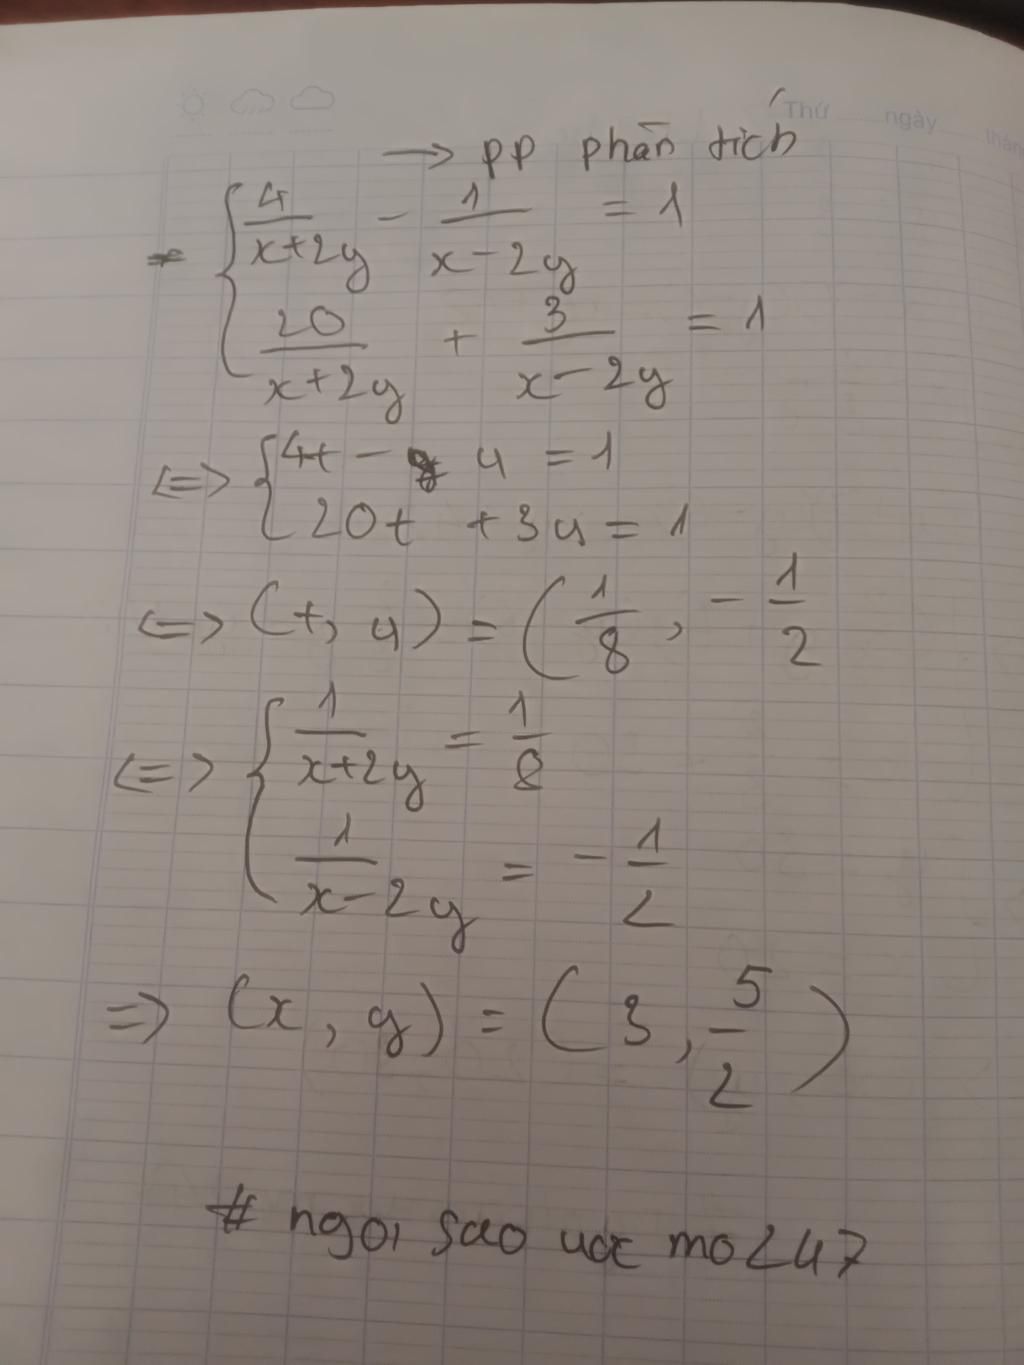 Thứ ngày tháng
→ pp phần tích
{ 4/(x+2y) - 1/(x-2y) = 1
20/(x+2y) + 3/(x-2y) = 1
<=> { 4t - u = 1
20t + 3u = 1
<=> (t, u) = ( 1/8 , - 1/2
<=> { 1/(x+2y) = 1/8
1/(x-2y) = - 1/2
=> (x, y) = ( 3, 5/2 )
# ngoi sao uoc mo247